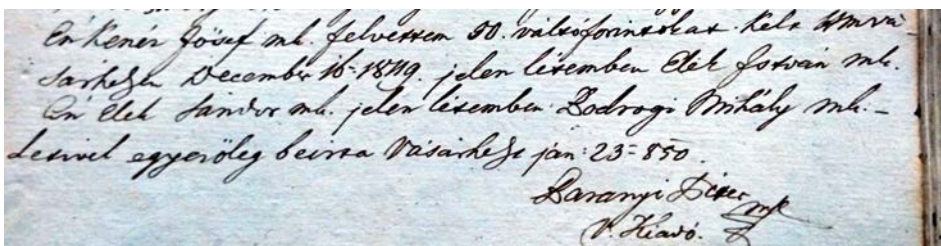 Én Kenéz Jósef mk. felvettem 50. váltóforintokat. Kelt HMvá
sárhelyen December 16-1849. jelen létemben Elek István mk.
Én Elek Sándor mk. jelen létemben Bodrogi Mihály mk. –
Lesivel egyerőleg beirta Vásárhely jan: 23-850.
Baranyi mk
V. Kiadó.